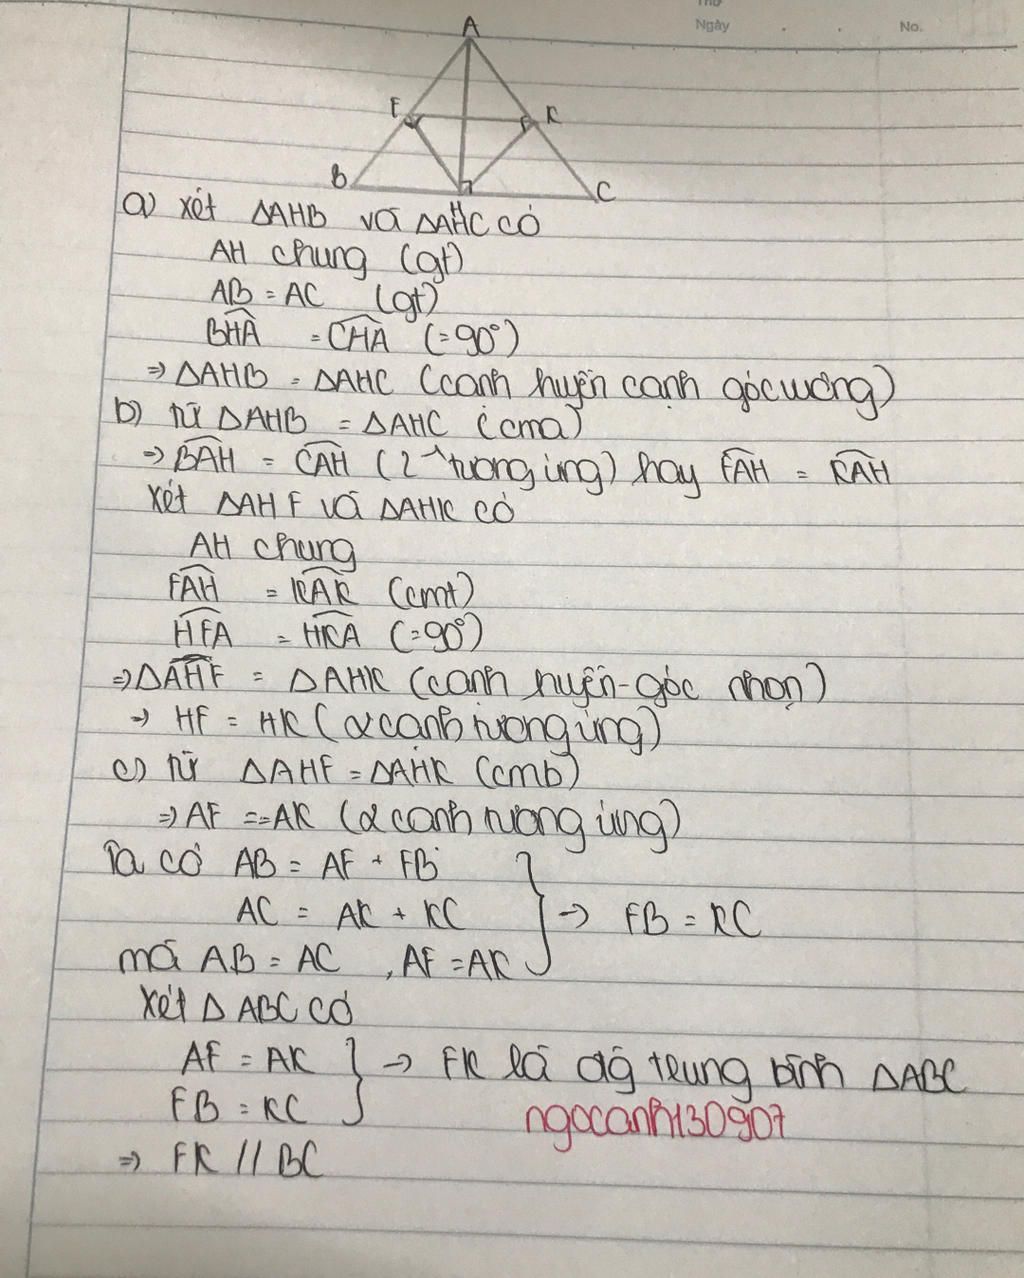 Thứ
Ngày . . No.
A
F K
B H C
a) xét ΔAHB và ΔAHC có
AH chung (gt)
AB = AC (gt)
BHA = CHA (=90°)
=> ΔAHB = ΔAHC (cạnh huyền cạnh góc vuông)
b) Từ ΔAHB = ΔAHC (cma)
=> BAH = CAH (2 ^ tương ứng) hay FAH = KAH
Xét ΔAHF và ΔAHK có
AH chung
FAH = KAK (cmt)
HFA = HKA (=90°)
=> ΔAHF = ΔAHK (cạnh huyện-góc nhọn)
-> HF = HK (2 cạnh tương ứng)
c) Từ ΔAHF = ΔAHK (cmb)
=> AF == AK (2 cạnh tương ứng)
Ta có AB = AF + FB
AC = AK + KC } -> FB = KC
mà AB = AC , AF = AK
Xét Δ ABC có
AF = AK } -> FK là đg trung bình ΔABC
FB = KC
ngocanh130907
=> FK // BC